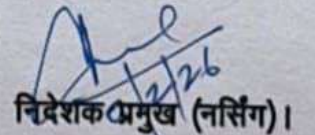 2/26
निदेशक प्रमुख (नर्सिंग)।